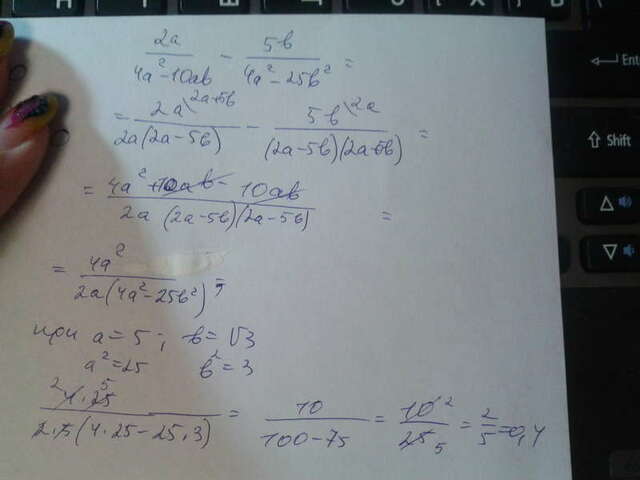 2a/(4a²-10ab) - 5b/(4a²-25b²) =
= 2a\2a+5b/(2a(2a-5b)) - 5b\2a/((2a-5b)(2a+5b)) =
= (4a²+10ab-10ab)/(2a (2a-5b)(2a-5b)) =
= 4a²/(2a(4a²-25b²)) =
при a=5 ; b=√3
a²=25 b²=3
4·25/(2·5(4·25-25·3)) = 10/(100-75) = 10/25 = 2/5 = 0,4
Enter
Shift